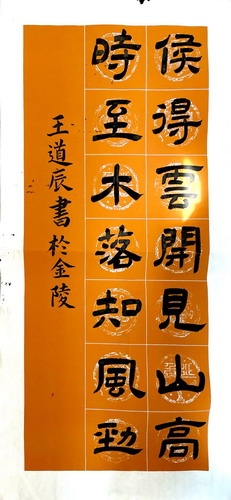 侯得雲開見山高
時至木落知風勁
王道辰書於金陵